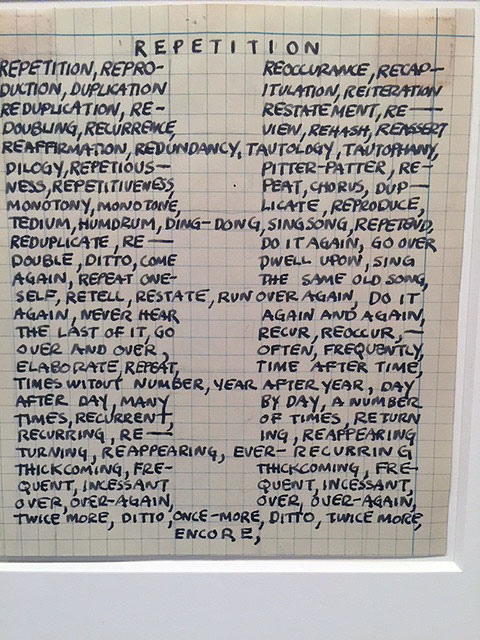 REPETITION
REPETITION, REPRO- REOCCURANCE, RECAP-
DUCTION, DUPLICATION ITULATION, REITERATION
REDUPLICATION, RE- RESTATEMENT, RE-
DOUBLING, RECURRENCE, VIEW, REHASH, REASSERT
REAFFIRMATION, REDUNDANCY, TAUTOLOGY, TAUTOPHANY,
DILOGY, REPETIOUS- PITTER-PATTER, RE-
NESS, REPETITIVENESS PEAT, CHORUS, DUP-
MONOTONY, MONOTONE, LICATE, REPRODUCE,
TEDIUM, HUMDRUM, DING-DONG, SINGSONG, REPETEND,
REDUPLICATE, RE- DO IT AGAIN, GO OVER
DOUBLE, DITTO, COME DWELL UPON, SING
AGAIN, REPEAT ONE- THE SAME OLD SONG,
SELF, RETELL, RESTATE, RUN OVER AGAIN, DO IT
AGAIN, NEVER HEAR AGAIN AND AGAIN,
THE LAST OF IT, GO RECUR, REOCCUR, -
OVER AND OVER, OFTEN, FREQUENTLY,
ELABORATE, REPEAT, TIME AFTER TIME,
TIMES WITOUT NUMBER, YEAR AFTER YEAR, DAY
AFTER DAY, MANY BY DAY, A NUMBER
TIMES, RECURRENT, OF TIMES, RETURN
RECURRING, RE- ING, REAPPEARING
TURNING, REAPPEARING, EVER-RECURRING
THICKCOMING, FRE- THICKCOMING, FRE-
QUENT, INCESSANT QUENT, INCESSANT,
OVER, OVER-AGAIN, OVER, OVER-AGAIN,
TWICE MORE, DITTO, ONCE-MORE, DITTO, TWICE MORE,
ENCORE,